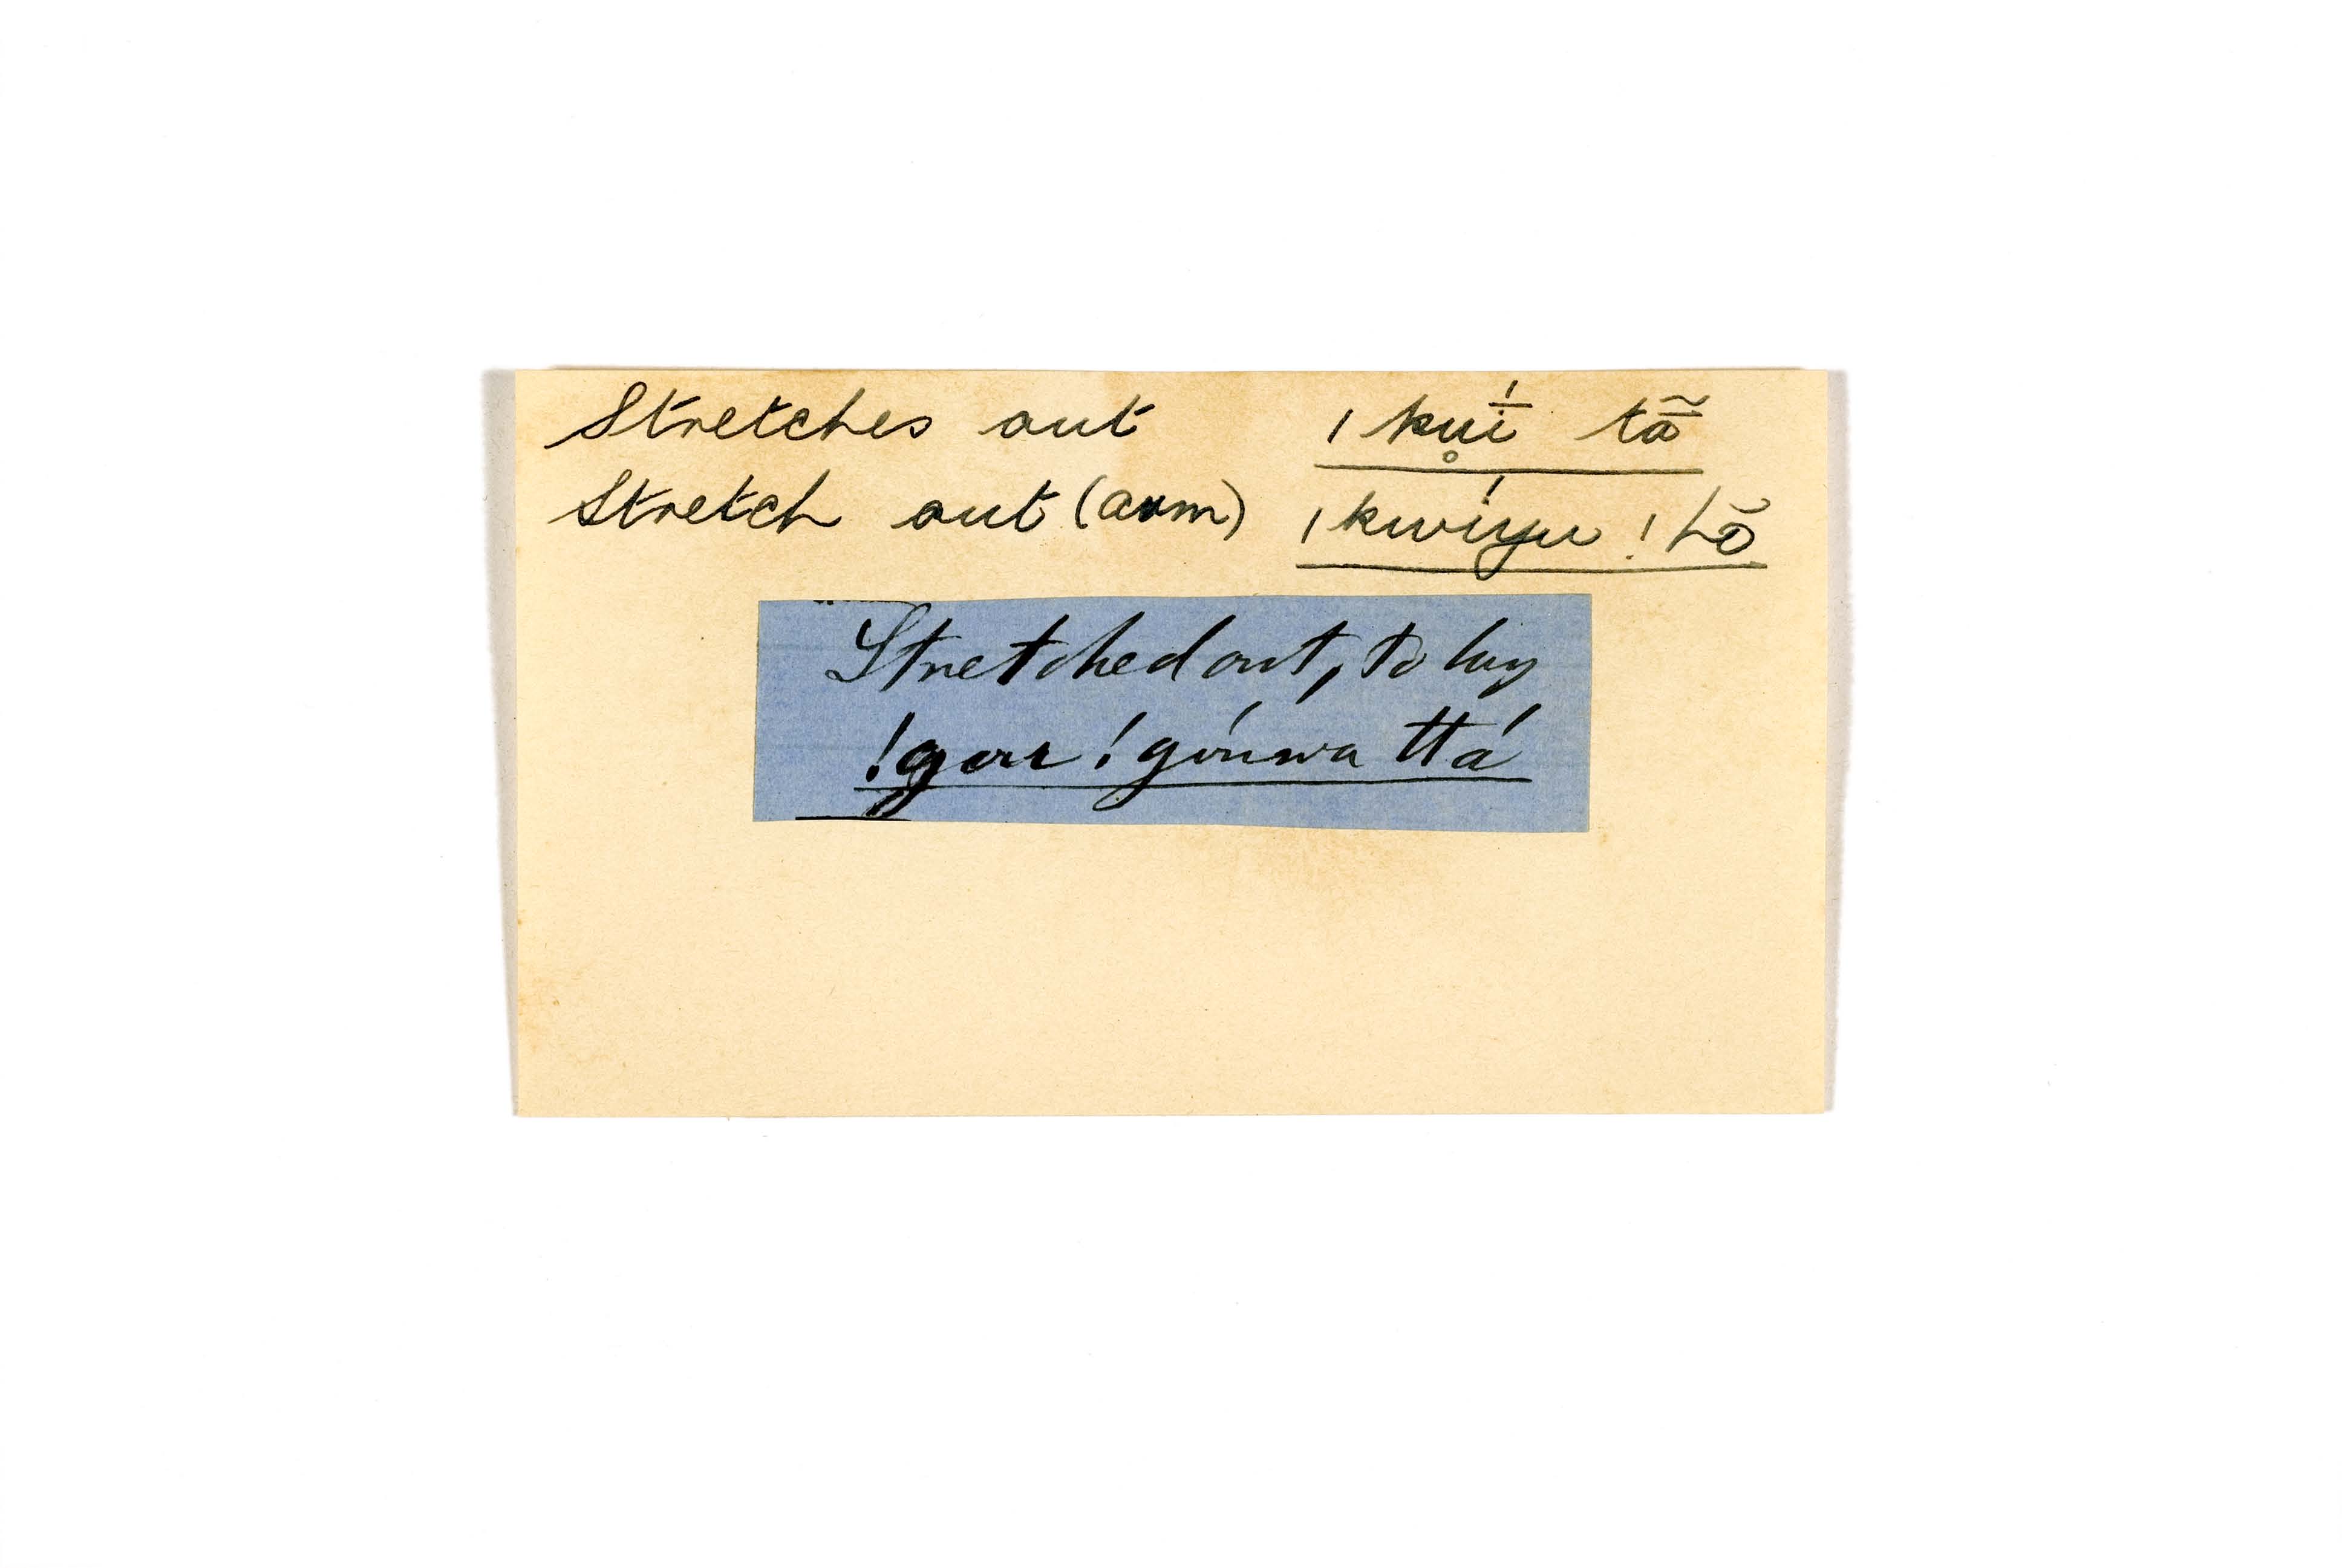 Stretches out ǀku̥í̄ tā̃
Stretch out (arm) ǀkwíyu !hõ
Stretched out, to lay
!gou !góuwa ttá